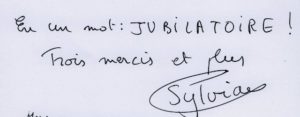 En un mot : JUBILATOIRE !
Trois mercis et plus
Sylviane